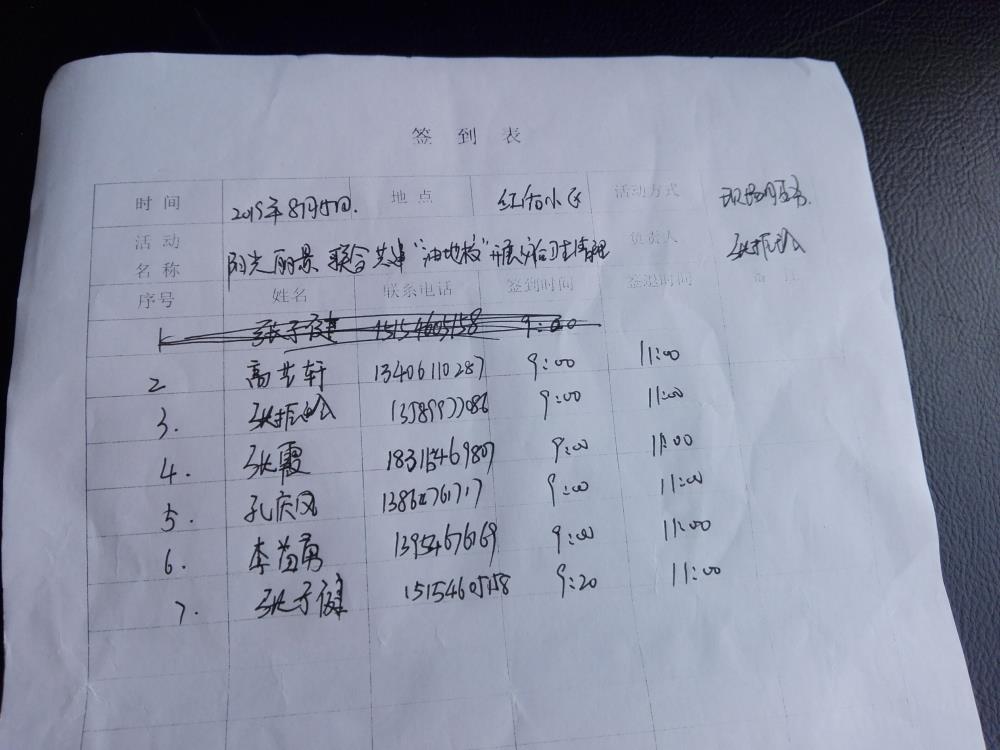 签到表
时间 2019年8月17日. 地点 红 小区 活动方式 现场
活动名称 阳光丽景 联合共建"油地校"开展 卫生清理 负责人 张振
序号 姓名 联系电话 签到时间 签退时间 备注
1 张子健 15154605158 9:00
2 高艺轩 13406110287 9:00 11:00
3. 张振 13589977086 9:00 11:00
4. 张霞 18315469807 9:00 11:00
5. 孔庆风 9:00 11:00
6. 李益勇 13954676169 9:00 11:00
7. 张子健 15154605158 9:20 11:00